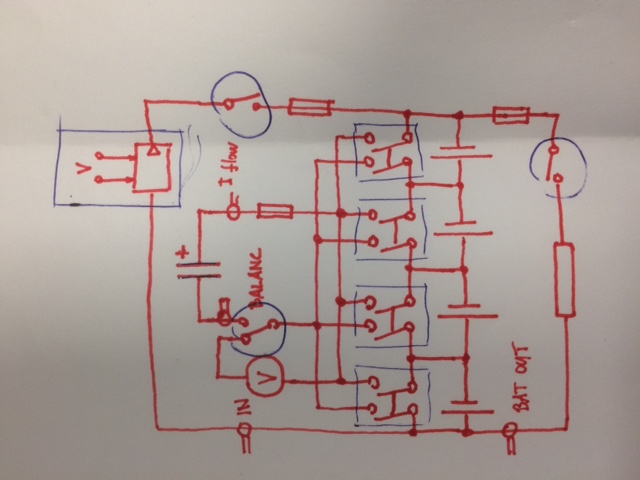 V
I flow
+
BALANC
V
IN
BAT OUT